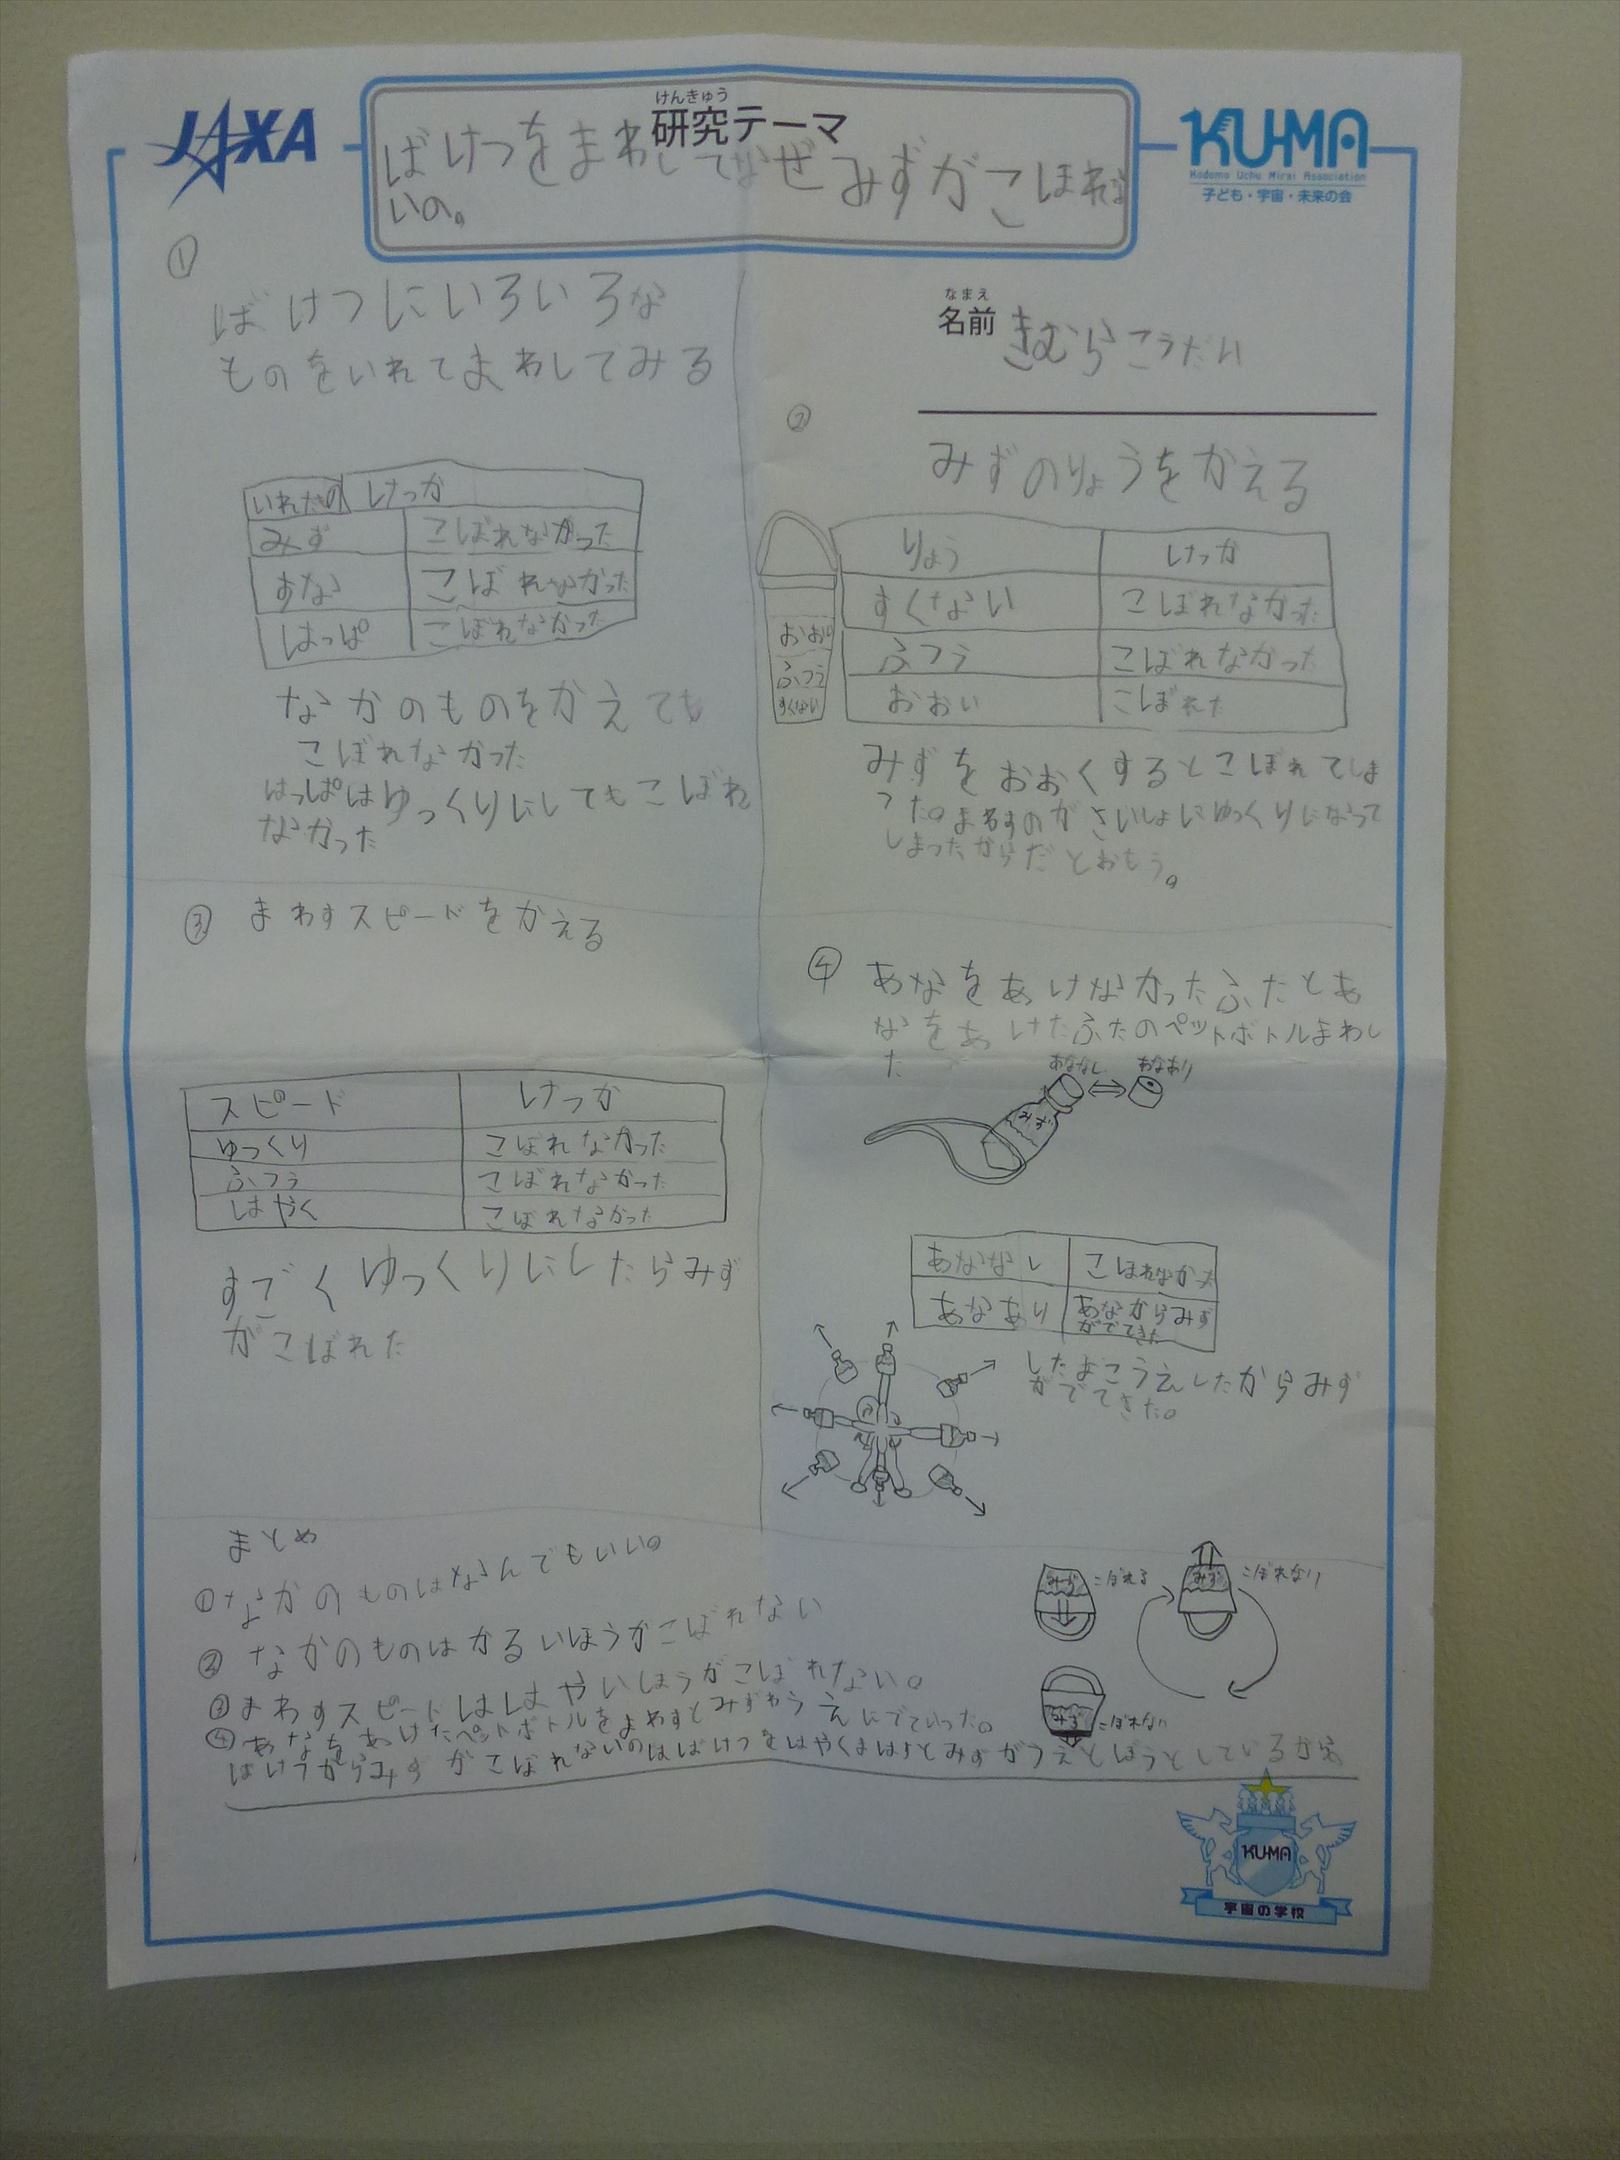 JAXA
けんきゅう
研究テーマ
KU-MA
Kodomo Uchu Mirai Association
子ども・宇宙・未来の会
ばけつをまわしてなぜみずがこぼれな
いの。
なまえ
名前 きむらこうだい
①
ばけつにいろいろな
ものをいれてまわしてみる
いれたもの けっか
みず こぼれなかった
すな こぼれなかった
はっぱ こぼれなかった
なかのものをかえても
こぼれなかった
はっぱはゆっくりにしてもこぼれ
なかった
②
みずのりょうをかえる
おおい
ふつう
すくない
りょう けっか
すくない こぼれなかった
ふつう こぼれなかった
おおい こぼれた
みずをおおくするとこぼれてしま
った。まわすのがさいしょにゆっくりになって
しまったからだとおもう。
③ まわすスピードをかえる
スピード けっか
ゆっくり こぼれなかった
ふつう こぼれなかった
はやく こぼれなかった
すごくゆっくりにしたらみず
がこぼれた
④ あなをあけなかったふたとあ
なをあけたふたのペットボトルまわし
た
あななし あなあり
みず
あななし こぼれなかった
あなあり あなからみず
がでてきた
したよこうえしたからみず
がでてきた。
まとめ
①なかのものはなんでもいい。
②なかのものはかるいほうがこぼれない
③まわすスピードははやいほうがこぼれない。
④あなをあけたペットボトルをまわすとみずがうえにでていった。
ばけつからみずがこぼれないのはばけつをはやくまはすとみずがうえとぼうとしているから
みず こぼれる
みず こぼれない
みず こぼれない
KU-MA
宇宙の学校